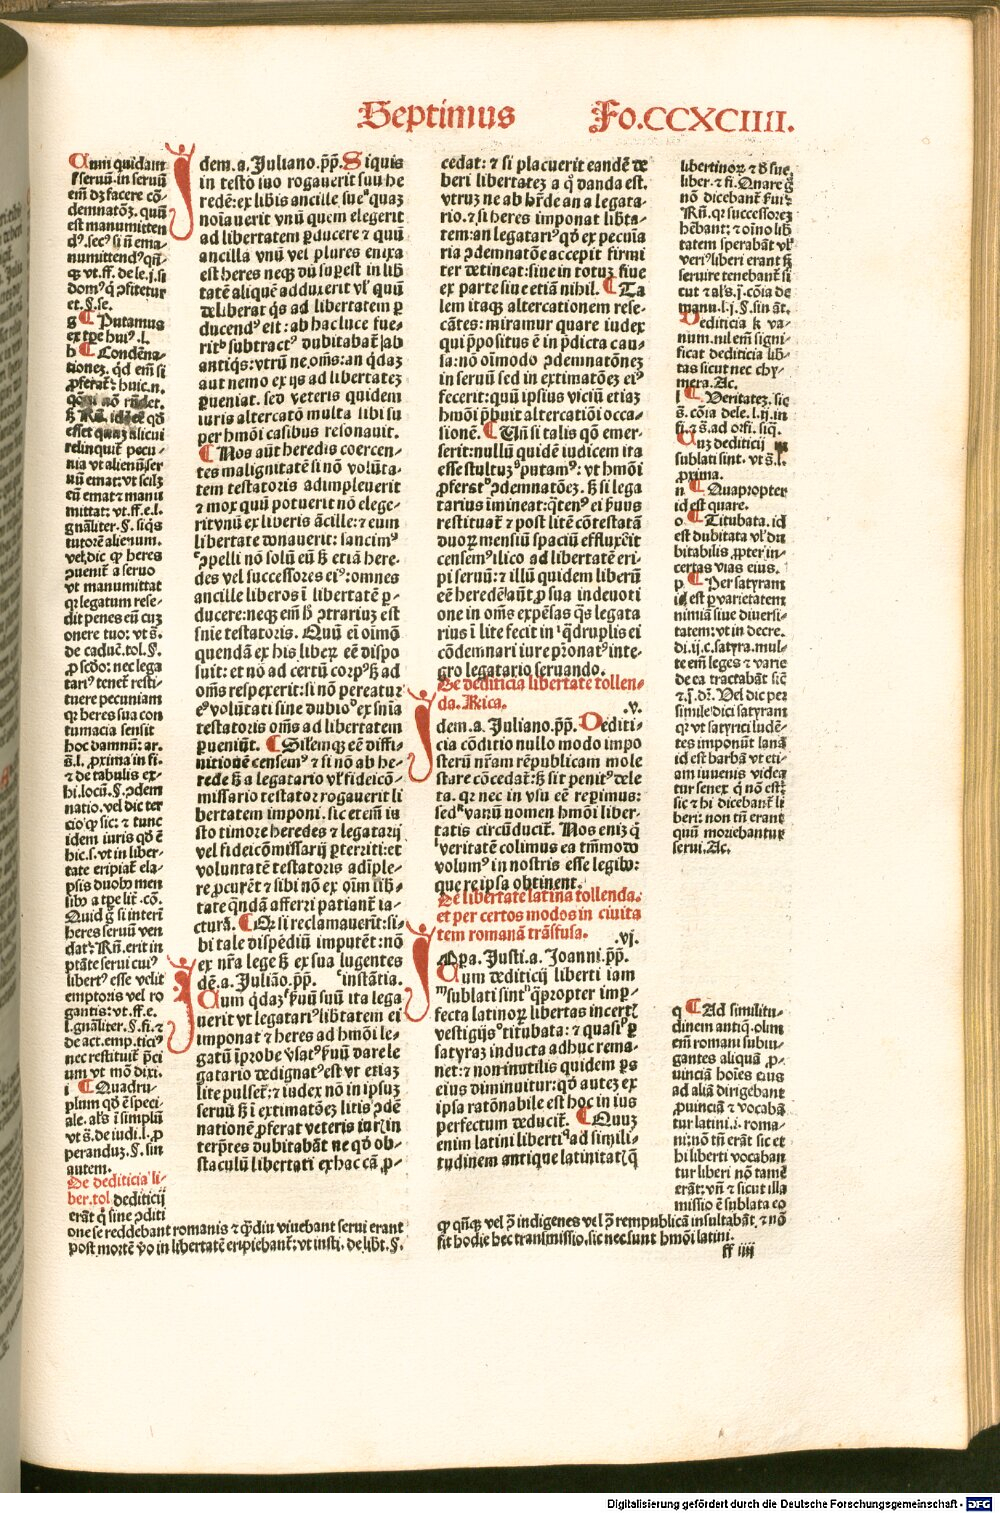 Septimus Fo.CCXCIIII.
Cum quidam
seruū.in seruū
em̄ dȝ facere cō-
demnatōȝ. quū
est manumitten
numittend⁹
et.§.se.
g ¶ Putamus
h ¶ Condēna-
tioneȝ. qd em̄ si
relinquit pecu-
nia vt alienū ser
uū emat: vt scilȝ
eū emat et manu
mittat: vt.ff.e.l.
gnāliter.§.siqs
tutorē alienum.
vel dic qp heres
ɔuenit a seruo
vt manumittat
qr legatum rese-
dit penes eū cuȝ
onere tuo: vt s̄.
de caduc̄.tol.§.
p scdo: nec lega
tari⁹ tenet resti-
tuere pecuniam
qr heres sua con
tumacia sensit
hoc damnū: ar.
s̄.l. pxima in fi.
⁊ de tabulis ex-
hi.locū.§.ɔdem
natio. vel dic ter
cio qp sic: ⁊ tunc
idem iuris qd ē
hic.s.vt in liber-
tate eripiat ela-
psis duob⁹ men
heres seruū ven
emptoris vel ro
gantis: vt.ff.e.
l.gnāliter.§.fi.⁊
de act.emp.tici⁹
nec restituit p̄ci
um vt mō dixi.
i ¶ Quadru-
plum qd ē speci-
ale. als̄ ī simplū
vt s̄.de iudi.l.p
peranduȝ.§.sin
autem.
De dediticia li-
ber.tol dediticij
erāt q̄ sine ɔditi
one se reddebant romanis ⁊ qͣdiu viuebant serui erant
post mortē v̄o in libertatē eripiebant: vt insti. de libt̄.§.
Idem.a. Juliano.p̄p̄. Si quis
in testō suo rogauerit suū he
redē: ex libis ancille sue quaȝ
noīauerit vnū quem elegerit
ad libertatem pducere ⁊ quū
ancilla vnū vel plures enixa
est heres neqȝ dū supest in lib
tatē aliquē adduxerit vl' quū
deliberat q̄s ad libertatem p
ducend⁹ eit: ab hac luce fue-
rit subtract⁹ dubitabat ab
antiq̄s: vtrū ne om̄s: an q̄daȝ
aut nemo ex ijs ad libertateȝ
pueniat. sed veteris quidem
iuris altercatō multa libi su
per hmōi casibus resonauit.
¶ Nos aūt heredis coercen-
tes malignitatē si nō volūta-
tem testatoris adimpleuerit
⁊ mox quū potuerit nō elege-
rit vnū ex liberis ācille: ⁊ eum
libertate donauerit: sancim⁹
ɔpelli nō solū eū ß etiā here-
des vel successores ei⁹: omnes
ancille liberos ī libertatē p-
ducere: neqȝ em̄ ɔtrarius est
snīe testatoris. Quū ei oimō
quendā ex his liber eē dispo
suit: et nō ad certū corp⁹ ß ad
om̄s respexerit: si nō pereatur
e⁹ volūtati sine dubio ex snīa
testatoris om̄s ad libertatem
pueniūt. ¶ Silemqȝ eē diffi-
nitionē censem⁹ ⁊ si nō ab he-
rede ß a legatario vl' fideicō-
missario testator rogauerit li
bertatem imponi. sic etem̄ iu
sto timore heredes ⁊ legatarij
vel fideicōmissarij pterriti: et
voluntatē testatoris adīple-
re pcurēt ⁊ sibi nō ex oīm lib-
tate q̄ndā afferri patiant ia-
cturā. ¶ Qr si reclamauerīt: si-
bi tale dispēdiū imputēt: nō
ex nr̄a lege ß ex sua lugentes
dē.a. Juliāo.p̄p̄. instātia.
Cum q̄daȝ suū ita lega
uerit vt legatari⁹ libtatem ei
imponat ⁊ heres ad hmōi le-
gatū īprobe v̄sat
gatario dedignat⁹ est vt etiaȝ
lite pulset: ⁊ iudex nō in ipsuȝ
seruū ß ī extimatōeȝ litis ɔdē
nationē pferat veteris
terp̄tes dubitabāt ne qd ob-
staculū libertati ex hac cā p-
cedat: ⁊ si placuerit eandē de
beri libertateȝ a q̊ danda est.
vtruȝ ne ab hr̄de an a legata-
rio. ⁊ si heres imponat libta-
tem: an legatari⁹ qd ex pecuīa
ria ɔdemnatōe accepit firmi
ter detineat: siue in totuȝ siue
ex parte siue etiā nihil. ¶ Ta
lem itaqȝ altercationem rese-
cātes: miramur quare iudex
qui p̄positus ē in p̄dicta cau
sa: nō oīmodo ɔdemnatōneȝ
in seruū sed in extimatōeȝ ei⁹
fecerit: quū ipsius viciū etiaȝ
hmōi p̄buit altercatiōi occa-
sionē. ¶ Vn̄ si talis qō emer-
serit: nullū quidē iudicem ita
esse stultuȝ putam⁹: vt hmōi
pferst ɔdemnatōeȝ. ß si lega
tarius imineat: q̄ten⁹ ei
restituat ⁊ post litē cōtestatā
duoȝ mensiū spaciū effluxēit
censem⁹ ilico ad libertatē eri-
pi seruū: ⁊ illū quidem liberū
eē heredē aūt p sua indeuoti
one in om̄s expēsas q̄s legata
rius ī lite fecit in q̄druplis ei
cōdemnari iure p̄ronat⁹ inte-
gro legatario seruando.
De dediticia libertate tollen-
da. Rica. .v.
Idem.a. Juliano.p̄p̄. Dediti-
cia cōditio nullo modo impo
sterū nr̄am rēpublicam mole
stare cōcedat: ß sit penit⁹ dele
ta. qr nec in vsu eē repim̄us:
sed vanū nomen hmōi liber-
tatis circūducit. Nos eniȝ q̄
veritatē colimus ea tm̄modo
volum⁹ in nostris esse legib⁹:
que re ipsa obtinent.
De libertate latina tollenda.
et per certos modos in ciuita
tem romanā trāsfusa. .vj.
Ipa. Justi.a. Joanni.p̄p̄.
Cum dediticij liberti iam
sublati sint q̄propter imp-
fecta latinoȝ libertas incertꝭ
vestigijs titubata: ⁊ quasi p
satyraȝ inducta adhuc rema-
net: ⁊ nō inutilis quidem ps
eius diminuitur: qd autez ex
ipsa ratōnabile est hoc in ius
perfectum deducit. ¶ Quuȝ
enim latini liberti ad simili-
tudinem antique latinitatꝭ q̄
libertinoȝ ⁊ ð sue.
liber.⁊ fi. Quare g̊
nō dicebant
Rn̄. qr successoreȝ
hēbant: ⁊ oīno lib
tatem sperabāt vl'
veri⁹ liberi erant ß
seruire tenebant si
cut ⁊ als̄.j. cōia de
manu.l.j.§.sin āt.
Dediticia k va-
num. nil em̄ signi-
ficat dediticia lib-
tas sicut nec chy-
mera. Ac.
l ¶ Veritateȝ. sic
s̄. cōia dele.l.ij.in
fi. ⁊ s̄.ad orfi.siq̄.
Cuȝ dediticij m
sublati sint. vt s̄.l.
pxima.
n ¶ Quapropter
id est quare.
o ¶ Titubata. id
est dubitata vl' du
bitabilis. ppter in-
certas vias eius.
p ¶ Per satyram
id est p varietatem
nimiā siue diuersi-
tatem: vt in decre.
di.ij.c.satyra.mul-
te em̄ leges ⁊ varie
de ea tractabāt sic̄
⁊.j.dr̄. Vel dic per
simile dici satyram
qr vt satyrici ludē-
tes imponūt lanā
id est barbā vt eti-
am iuuenis videa
tur senex q̄ nō est:
sic ⁊ hi dicebant li
beri: non tn̄ erant
quū moriebantur
serui. Ac.
q ¶ Ad similitu-
dinem antiq̄. olim
em̄ romani subiu-
gantes aliquā p-
uinciā hoīes eius
ad aliā dirigebant
puinciā ⁊ vocabā
tur latini.i. roma-
ni: nō tn̄ erāt sic et
hi liberti vocaban
tur liberi nō tamē
erāt: vn̄ ⁊ sicut illa
missio ē sublata eo
qp qn̄qȝ vel ɔ̄ indigenes vel ɔ̄ rempublicā insultabāt. ⁊ nō
fit hodie hec transmissio. sic nec sunt hmōi latini.
ff iiij
Digitalisierung gefördert durch die Deutsche Forschungsgemeinschaft - DFG